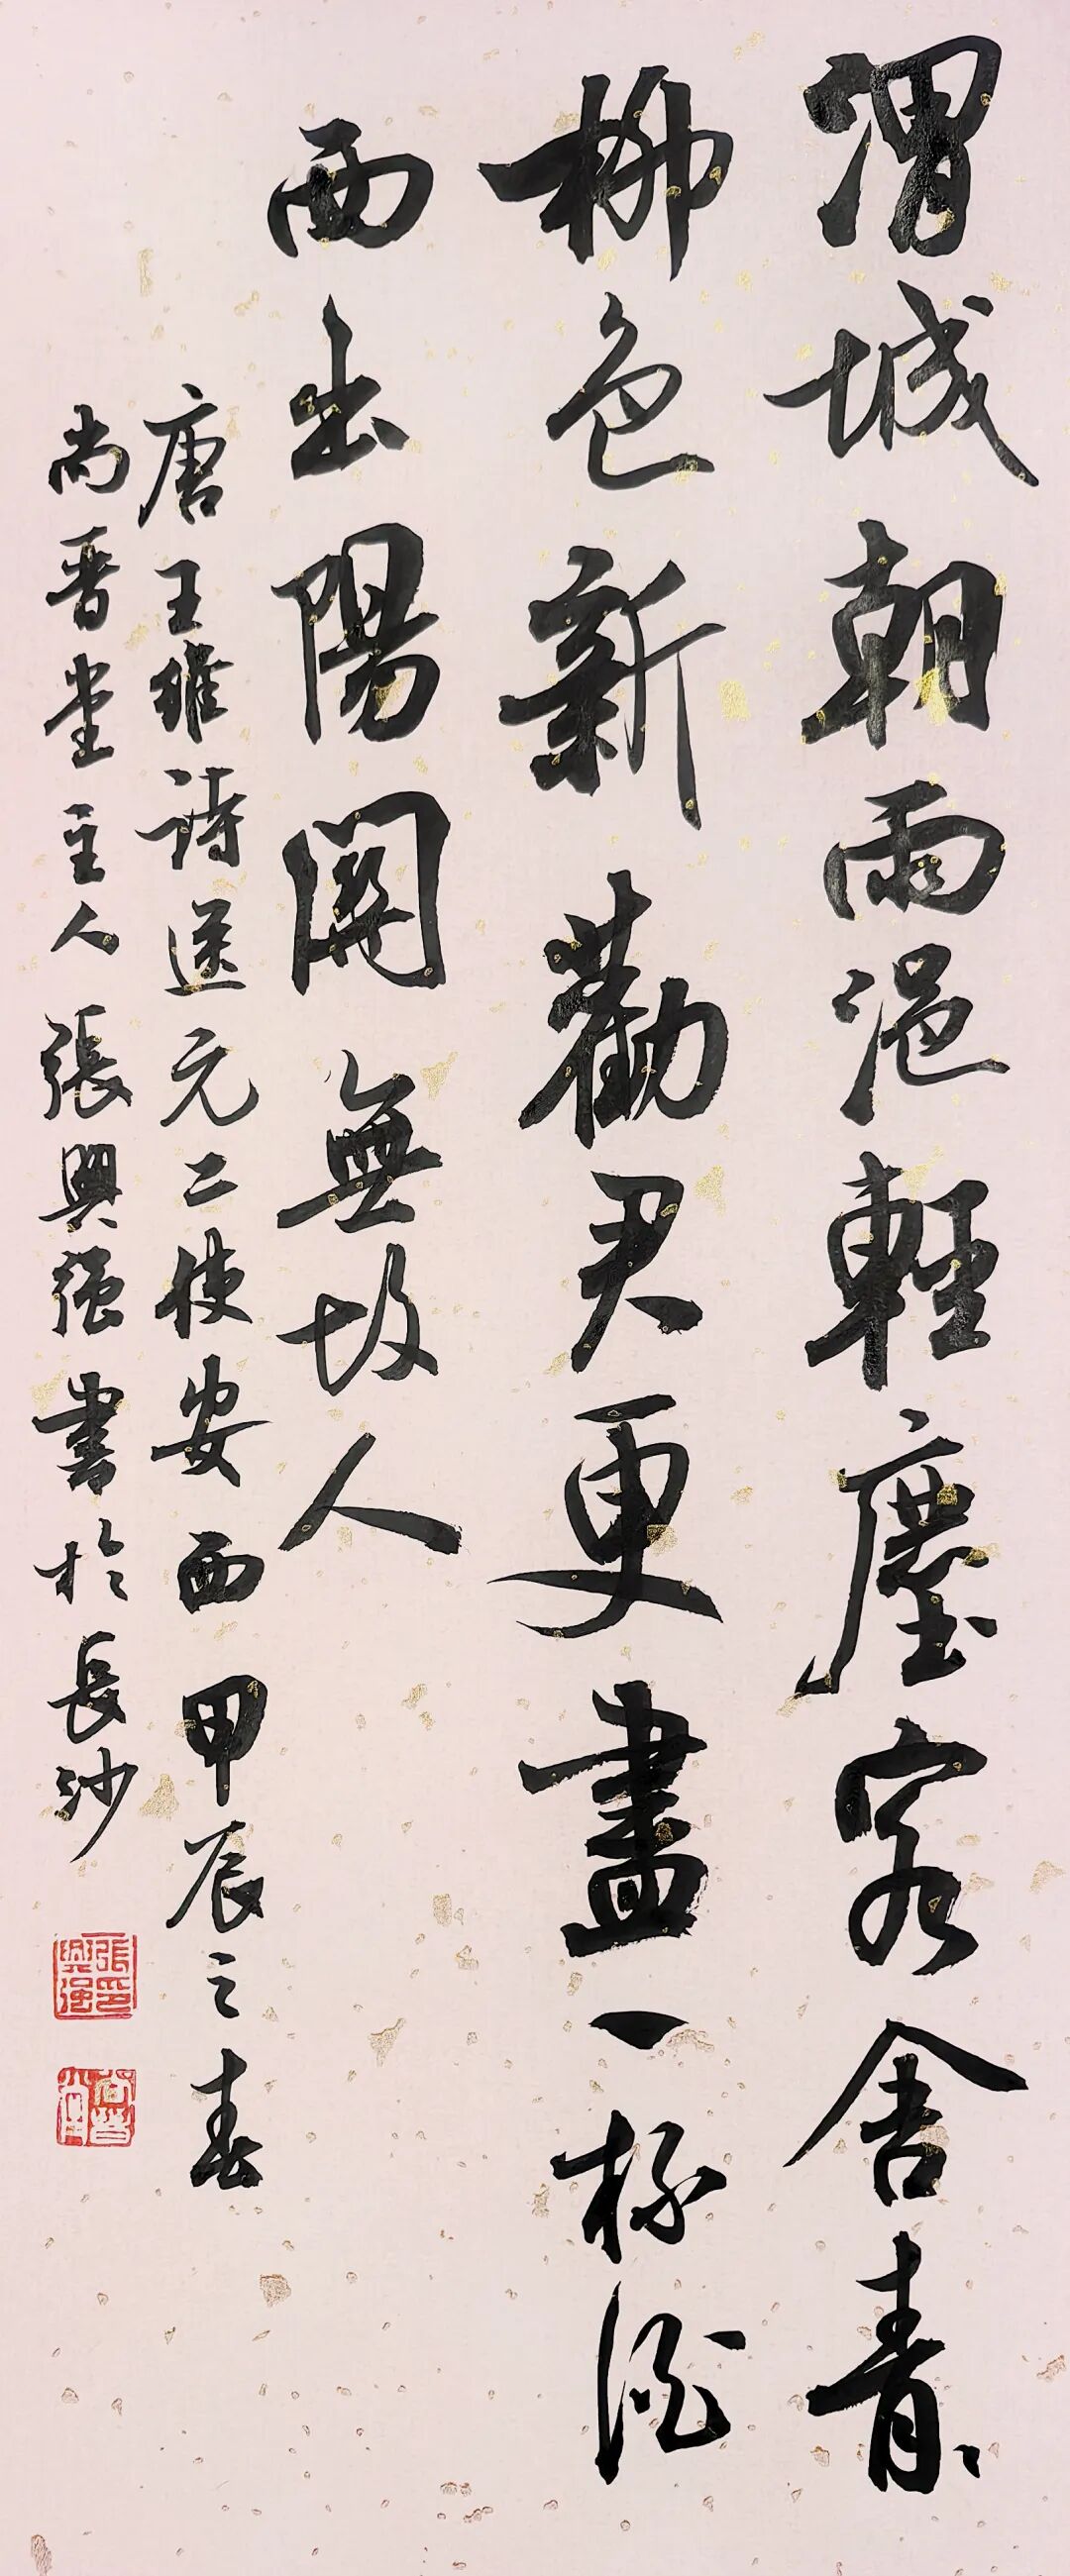 渭城朝雨浥輕塵客舍青〻
柳色新勸君更盡一杯酒
西出陽關無故人
唐王維詩送元二使安西甲辰之春
尚晋堂主人張興强書於長沙
張興强印
尚晋堂